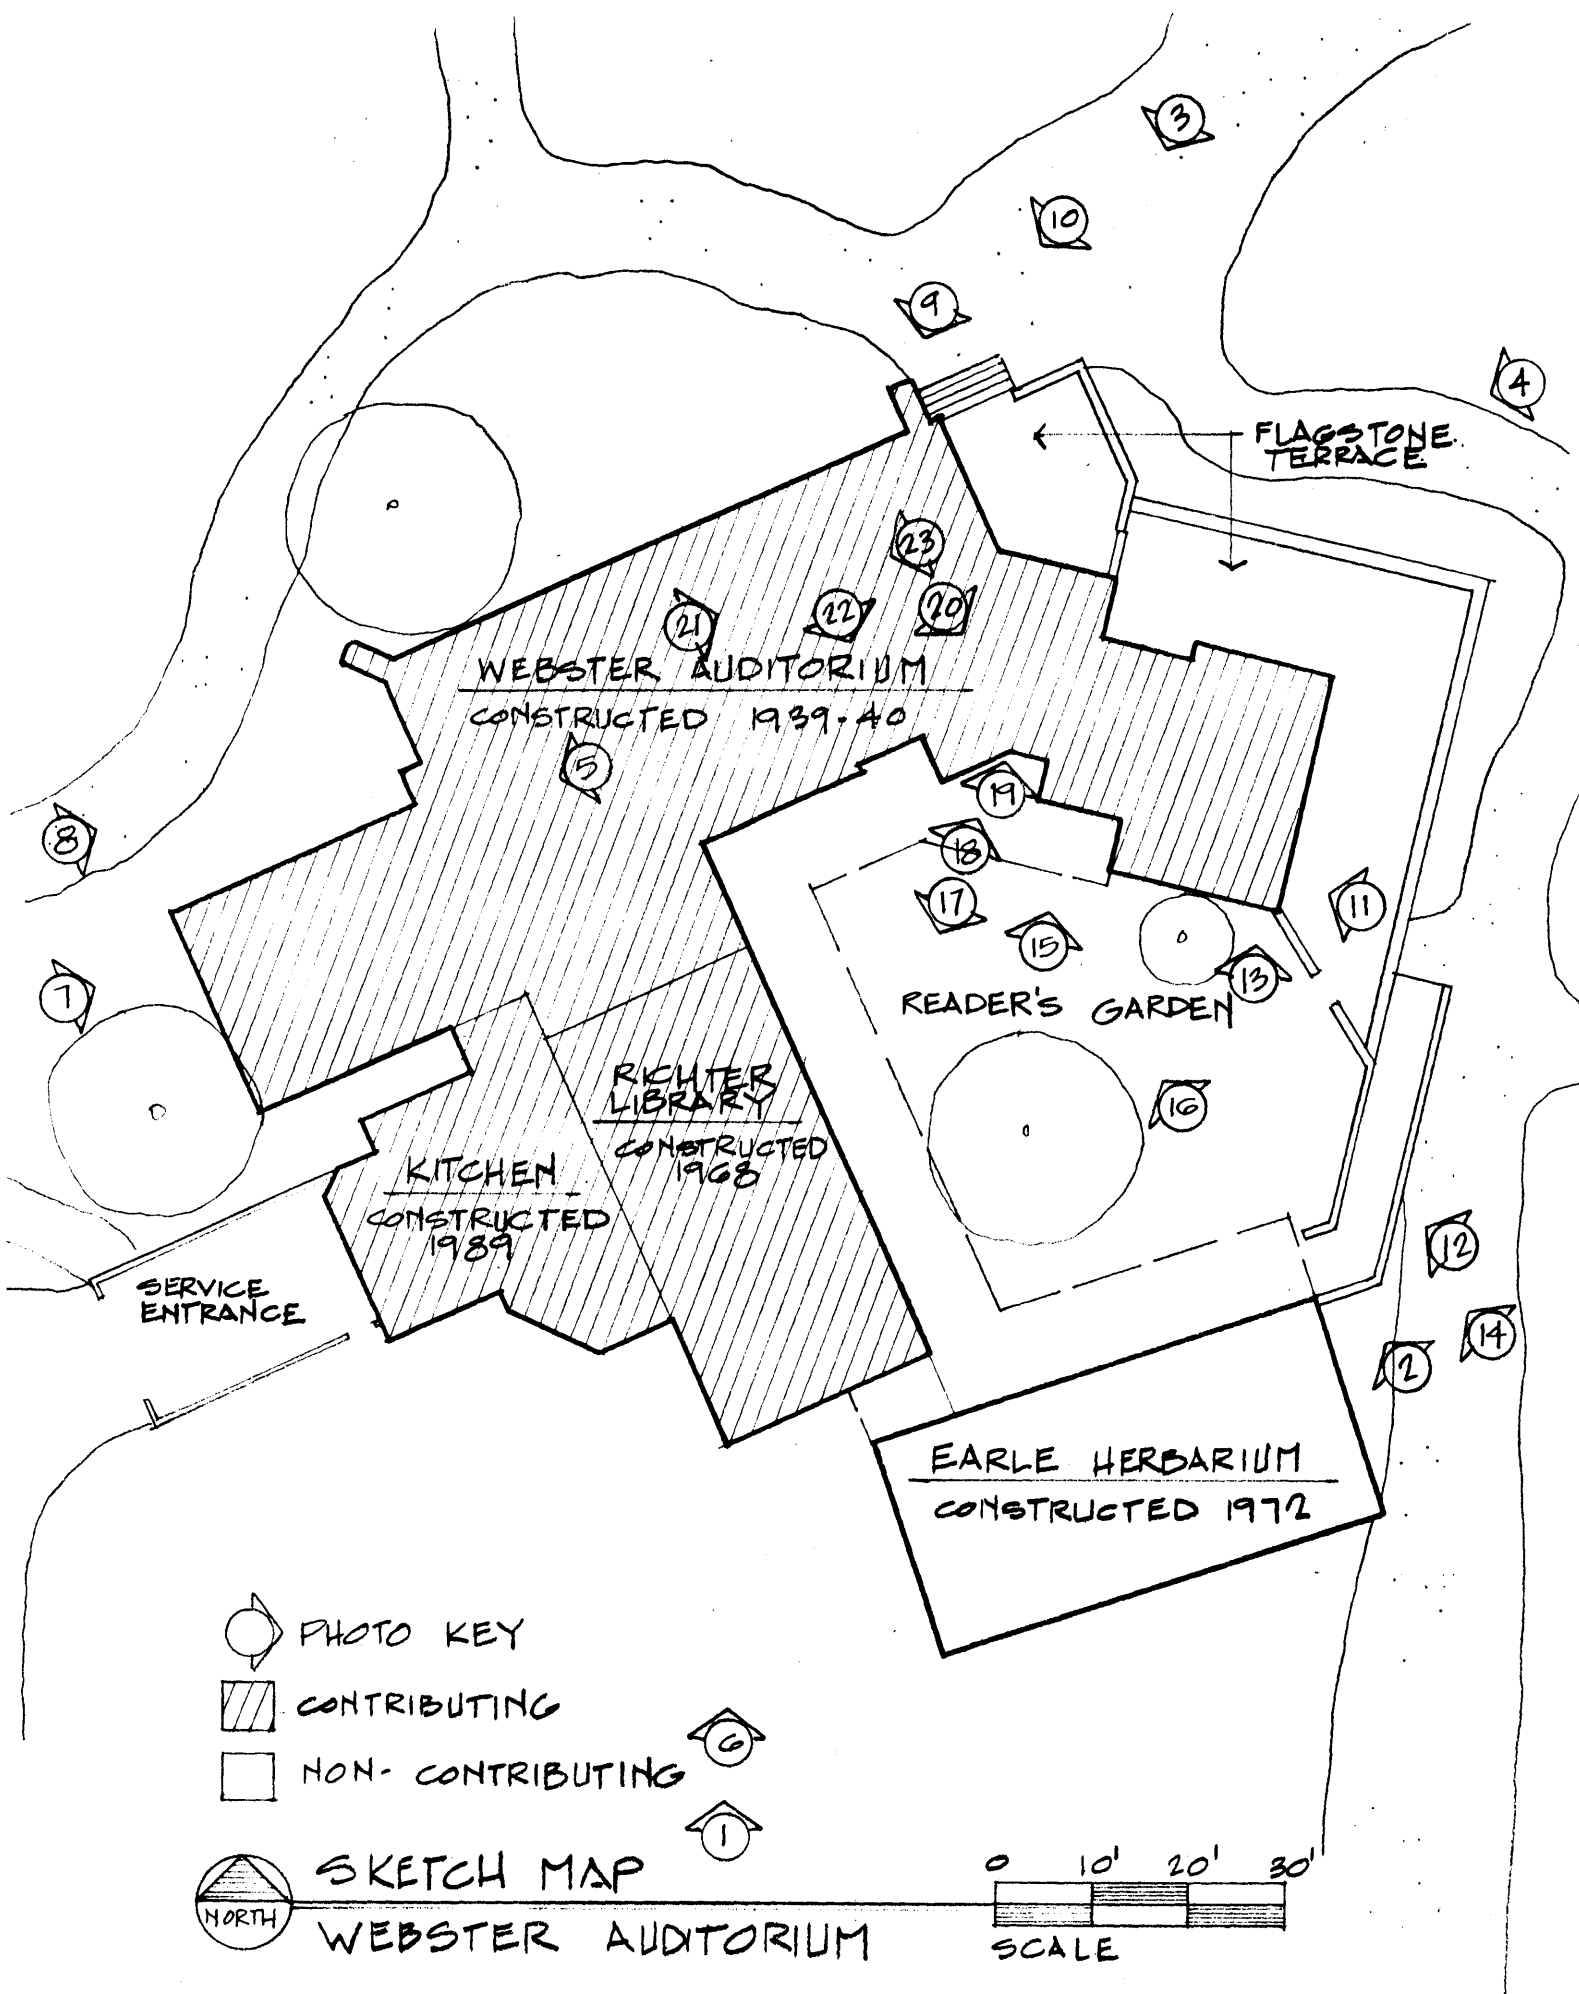 3
10
9
4
FLAGSTONE
TERRACE
23
21
22
20
WEBSTER AUDITORIUM
CONSTRUCTED 1939-40
5
19
8
18
17
11
15
13
7
READER'S GARDEN
16
RICHTER
LIBRARY
CONSTRUCTED
1968
KITCHEN
CONSTRUCTED
1989
12
SERVICE
ENTRANCE
14
2
EARLE HERBARIUM
CONSTRUCTED 1972
PHOTO KEY
CONTRIBUTING
6
NON-CONTRIBUTING
1
SKETCH MAP
0 10' 20' 30'
NORTH
WEBSTER AUDITORIUM
SCALE